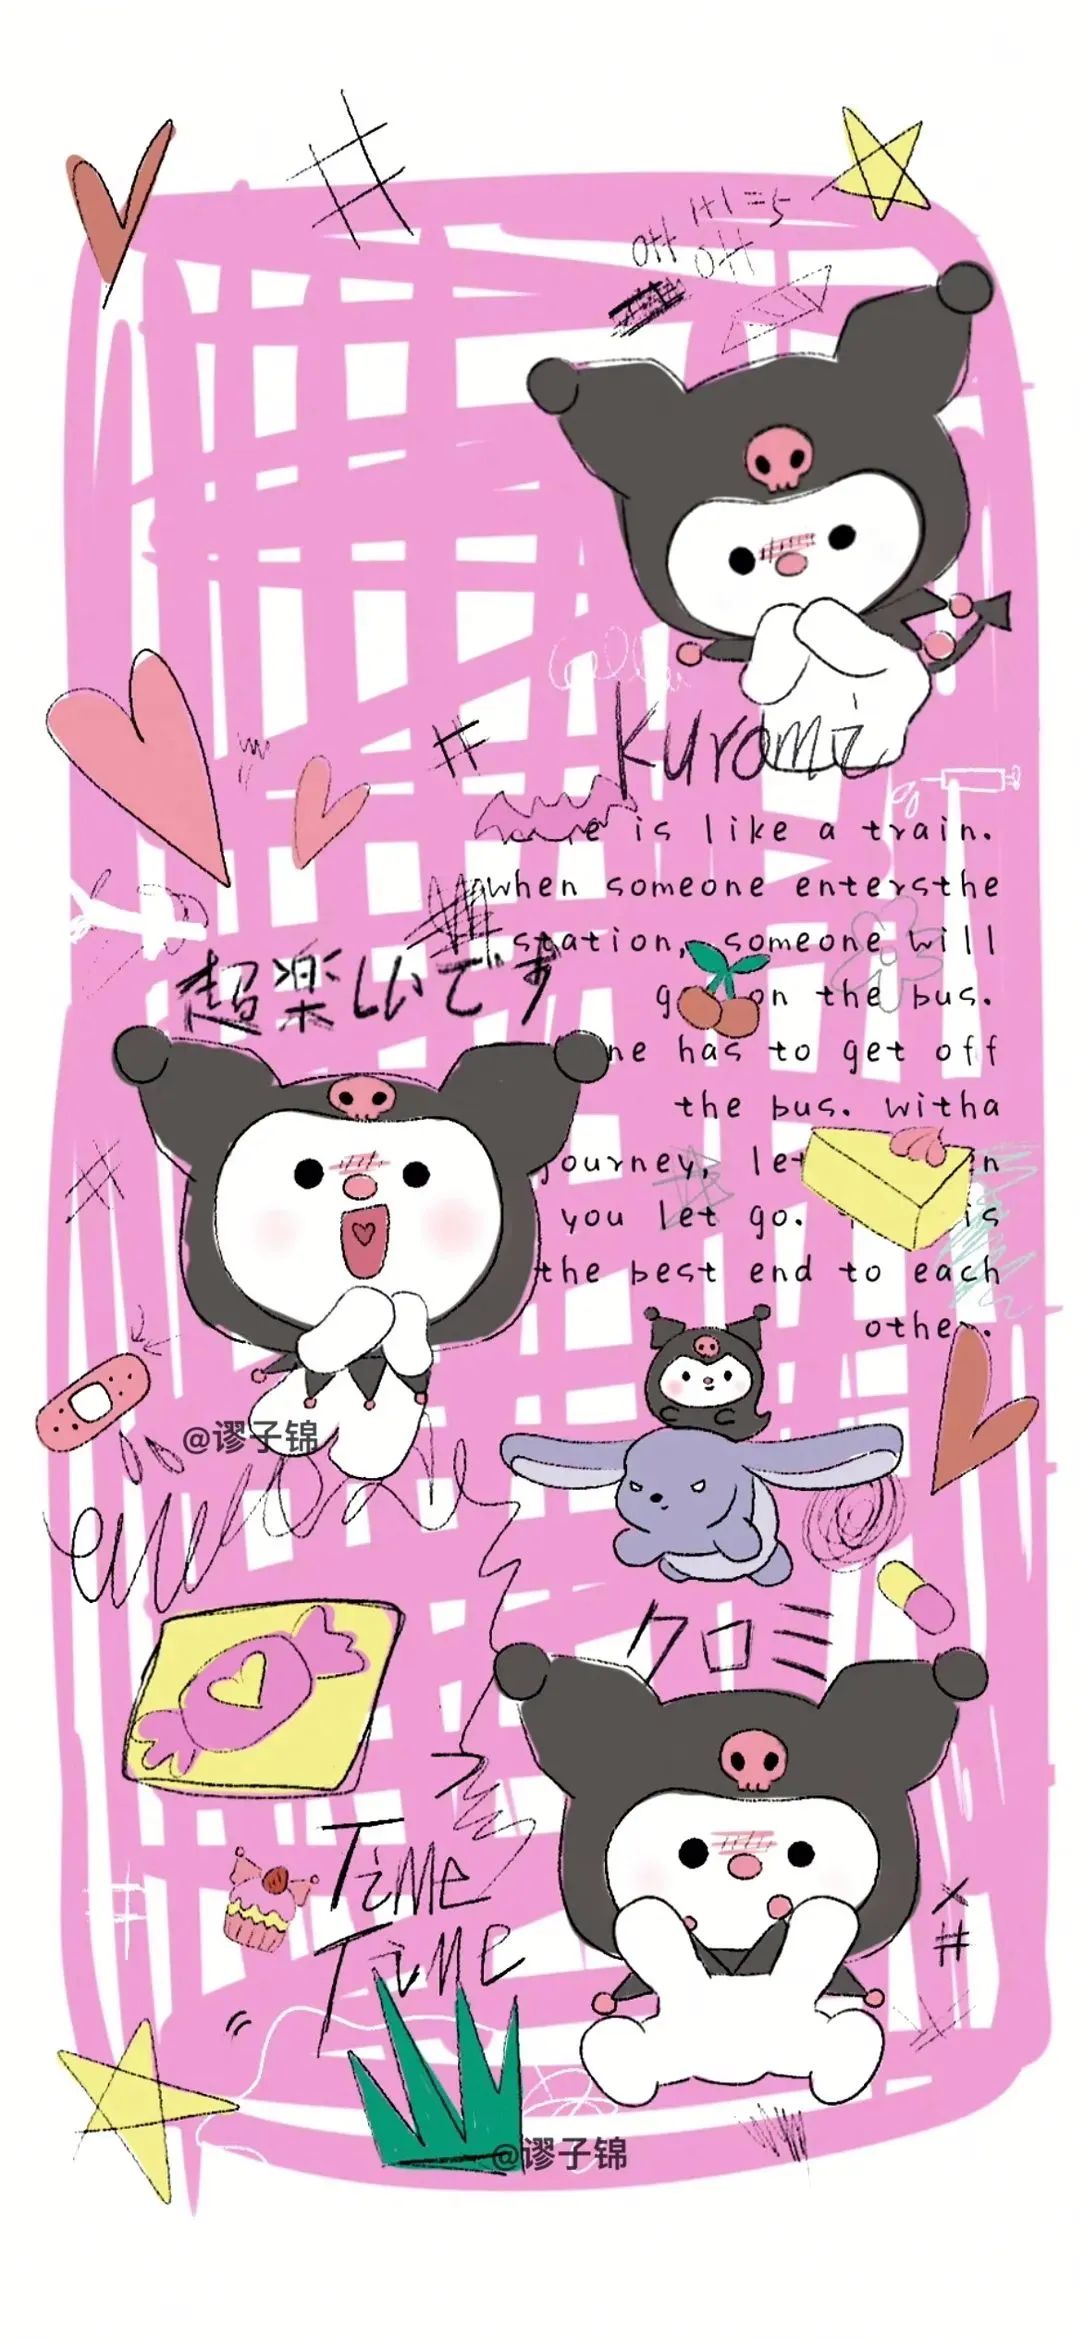 1+1=5
Kuromi
is like a train.
when someone entersthe
station, someone will
on the bus.
has to get off
the bus. witha
journey,
you let go. is
the best end to each
other.
超楽しいです
@谬子锦
クロミ
TiME
TiME
@谬子锦